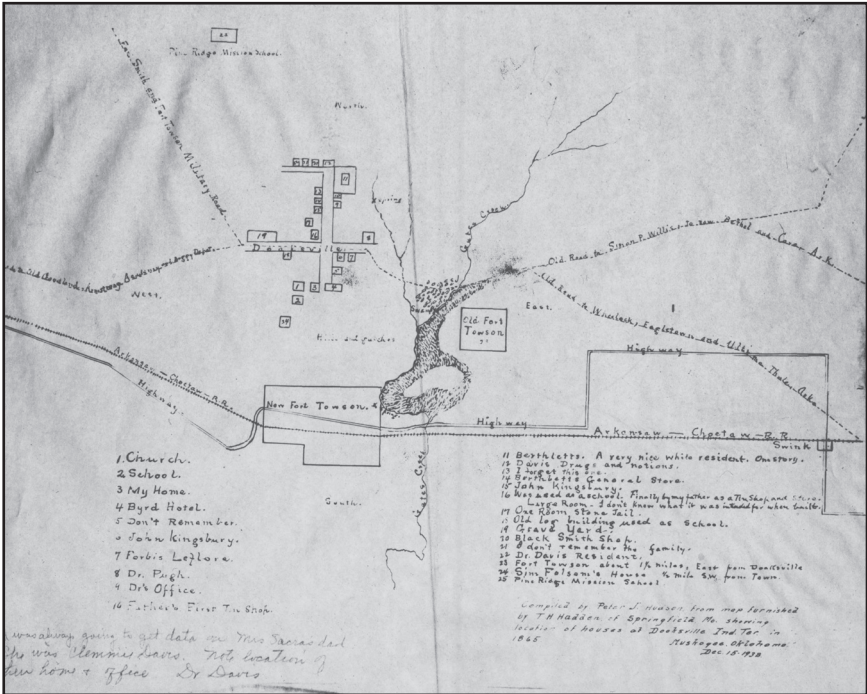 25
Pine Ridge Mission School.
North.
Fort Smith and Fort Towson Military Road
11
Spring
Gates Creek
19
16
8
Doaksville
Old Road to Simon P. Willis,
Bethel and Ark
West.
1
3
4
2
24
Old Road to Wheelock, Eagletown and
East.
Old Fort
Towson
Hills and gulches
Arkansas – Choctaw – R.R.
Highway.
Highway
New Fort Towson.
Highway
Arkansaw — Choctaw — R.R.
Swink
Gates Creek
South.
1. Church.
2 School.
3 My Home.
4 Byrd Hotel.
5 Don't Remember.
6 John Kingsbury.
7 Forbis Leflore.
8 Dr. Pugh.
9 Dr's Office.
10 Father's First Tin Shop.
11 Berthletts. A very nice white resident. One story.
12 Davis Drugs and notions.
13 I forget this one.
14 Berthletts General Store.
15 John Kingsbury.
16 Was used as a school. Finally by my father as a Tin Shop and Store.
Large Room. I don't know what it was intended for when built.
17 One Room Stone Jail.
18 Old log building used as School.
19 Grave Yard.
20 Black Smith Shop.
21 I don't remember the family.
22 Dr. Davis Resident.
23 Fort Towson about 1½ miles, East from Doaksville
24 Sim Folsom's House ½ mile S.W. from Town.
25 Pine Ridge Mission School.
Compiled by Peter J. Hudson from map furnished
by T H Hadden of Springfield Mo. showing
location of houses at Doaksville Ind. Ter in
1865
Muskogee Oklahoma
Dec 15-1932
was always going to get data on Mrs dad
was Clemmie Davis. Note location of
their home & office Dr Davis